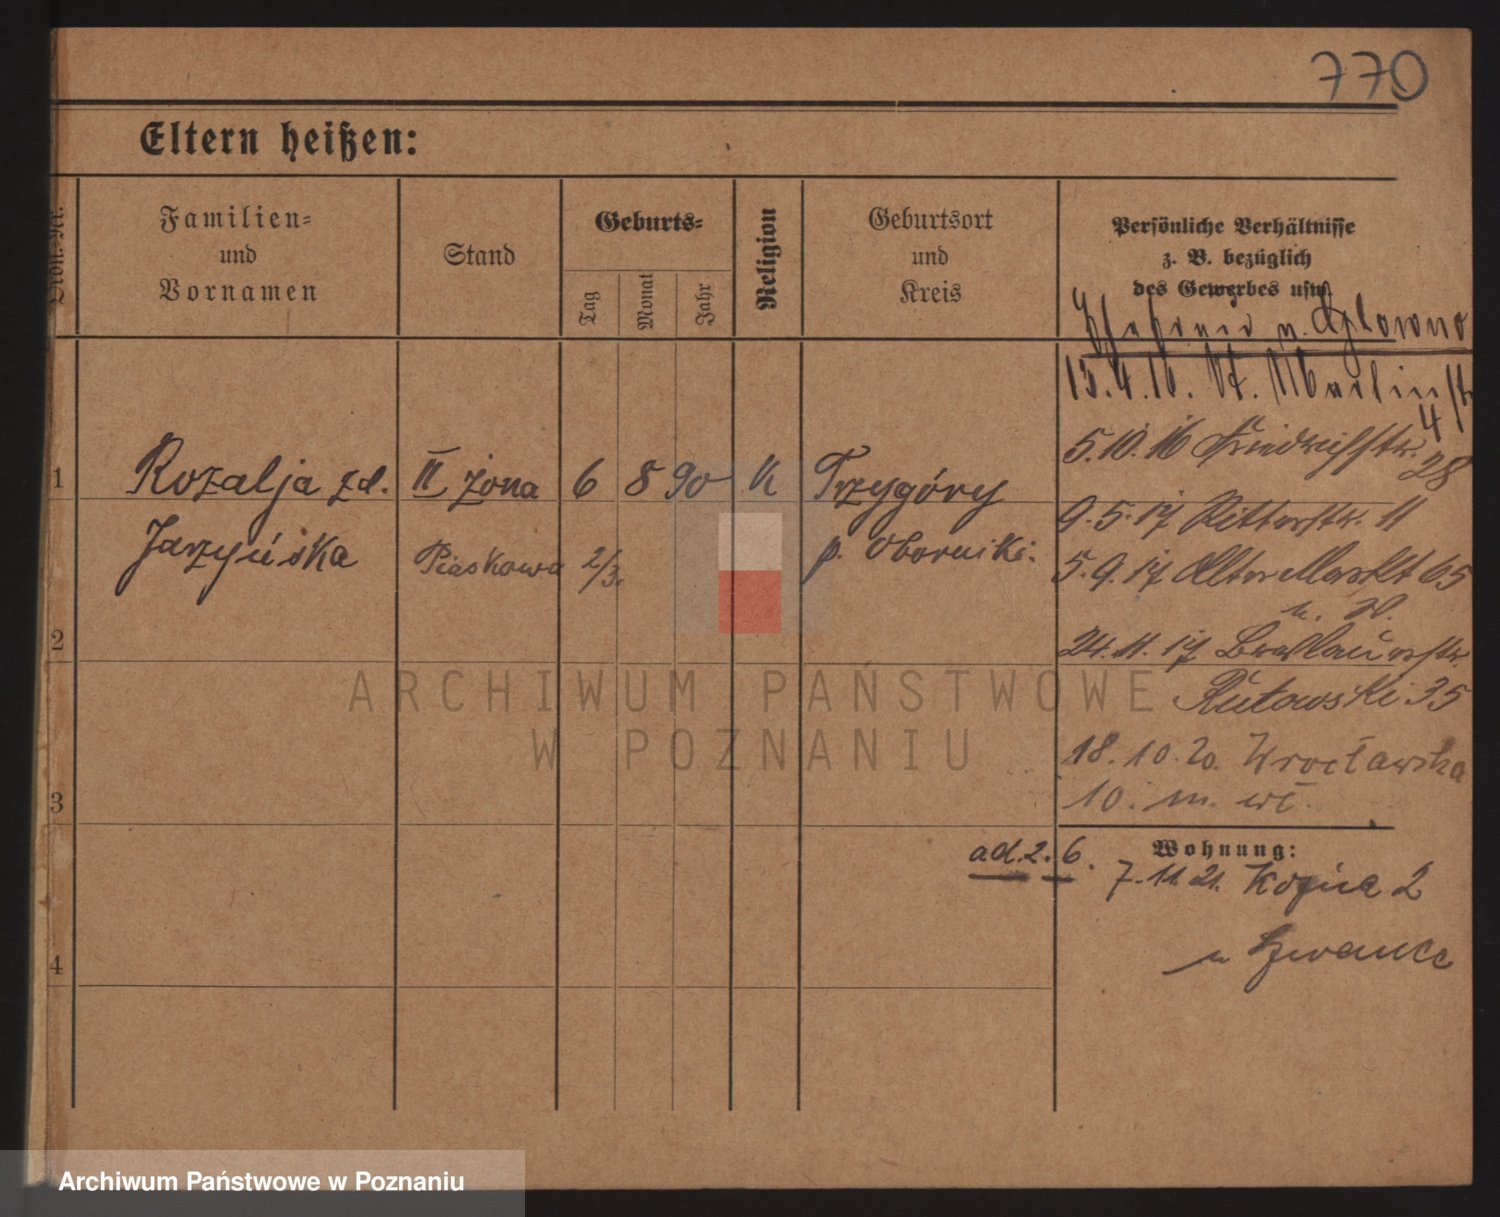 770
Eltern heißen:
Ordn.-Nr.
Familien-
und
Vornamen
Stand
Geburts-
Tag
Monat
Jahr
Religion
Geburtsort
und
Kreis
Persönliche Verhältnisse
z. B. bezüglich
des Gewerbes usw.
Główno
13.4.16. St. Martinstr.
4
5.10.16 Friedrichstr.
28
1 Rozalja zd. II żona 6 8 90 K Trzygóry
9.5.17 Ritterstr. 11
Jarzyńska Piaskowa 2/3. p. Oborniki.
5.9.17 Alter Markt 65
2
24.11.17 Breslauerstr.
Rutowski 35
ARCHIWUM PAŃSTWOWE
W POZNANIU
18.10.20. Wrocławska
3
10. m. wł.
ad. 2. 6.
Wohnung:
7.11.21. Kozia 2
4
Archiwum Państwowe w Poznaniu